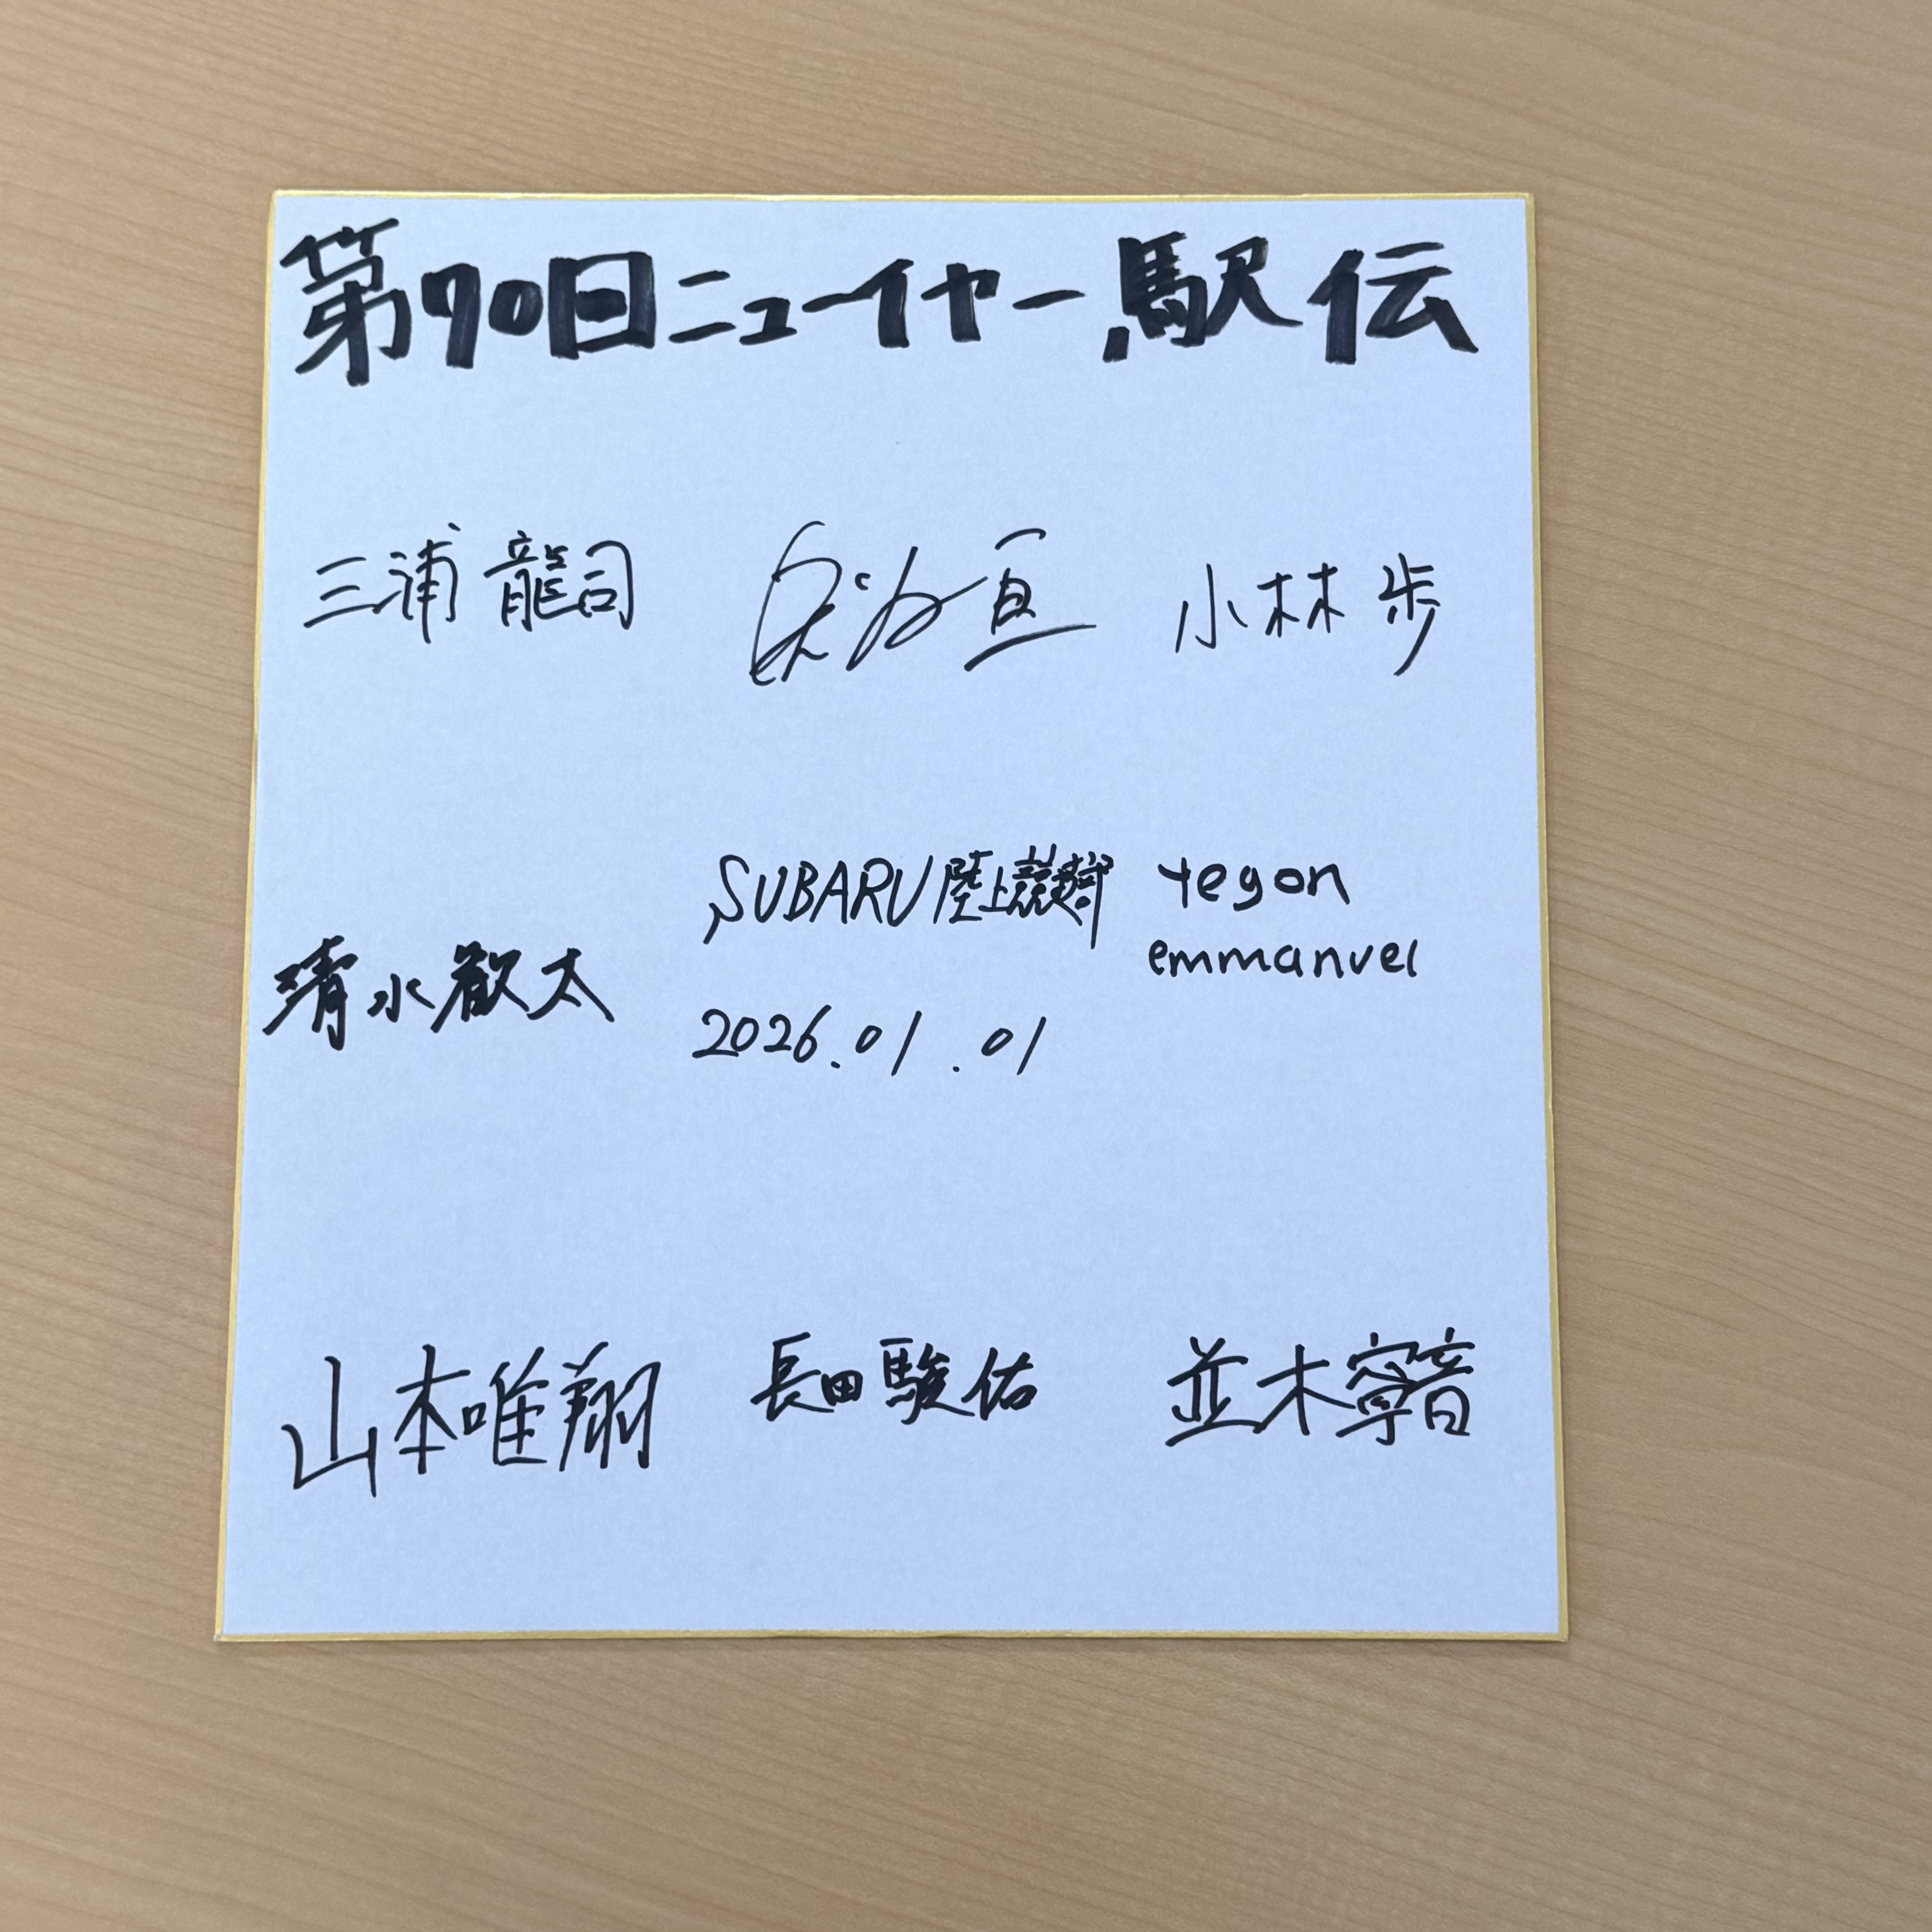 第70回ニューイヤー駅伝
三浦 龍司 奥谷 亘 小林 歩
SUBARU陸上競技部
yegon
emmanuel
清水歓太
2026.01.01
山本唯翔 長田駿佑 並木寧音